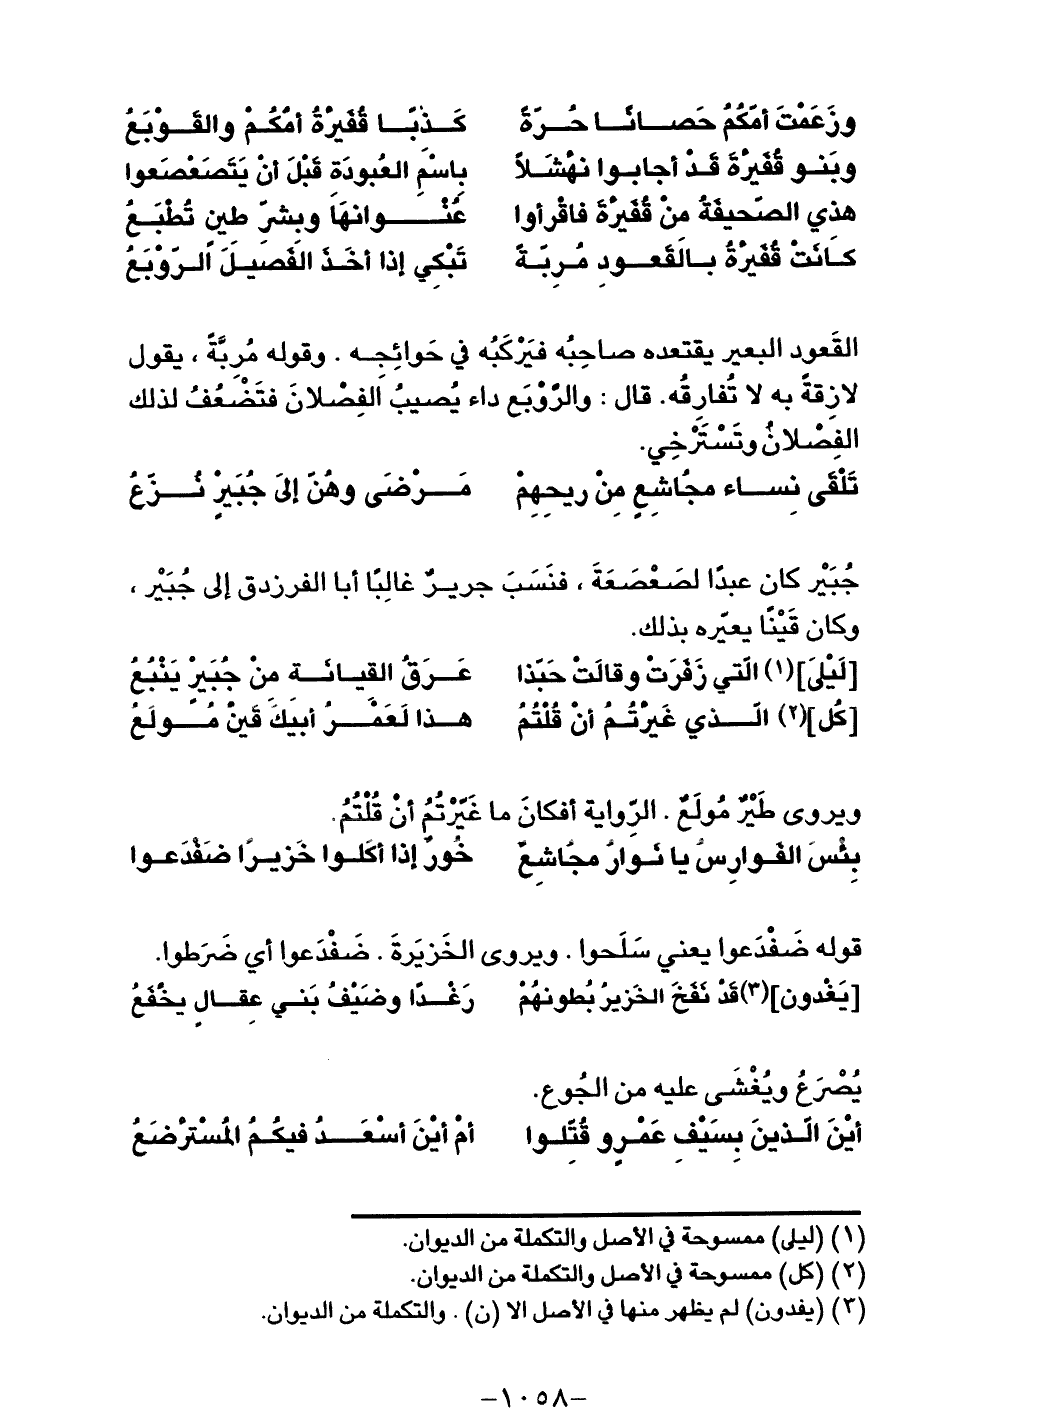 وزَعَمْتَ أمّكُمُ حَصانًا حُرّةً كَذبًا قُفَيْرْةُ أمّكُمْ والقَوْبَعُ
وبَنو قُفَيْرْةَ قَدْ أجابوا نهْشَلاً باِسْمِ العُبودَةِ قَبْلَ أنْ يَتَصَعْصَعوا
هذي الصّحيفَةُ مِنْ قُفَيْرْةَ فاقْرأوا عُنْوانهَا وبِشرّ طينٍ تُطْبَعُ
كانَتْ قُفَيْرْةُ بالقَعودِ مُرِبّةً تَبْكي إذا أخَذَ الفَصيلَ الرّوْبَعُ
القَعود البعير يقتعده صاحِبُه فيَرْكَبُه في حَوائِجِه . وقوله مُرِبَّةً ، يقول
لازِقةً به لا تُفارِقُه. قال : والرَّوْبَع داء يُصيبُ الفِصْلانَ فتَضْعُفُ لذلك
الفِصْلانُ وتَسْتَرْخِي.
تَلْقَى نِساء مجُاشِعٍ مِنْ ريحِهِمْ مَرْضَى وهُنّ إلىَ جُبَيرٍ نُزّعُ
جُبَيْر كان عبدًا لصَعْصَعَةَ ، فنَسَبَ جريرٌ غالِبًا أبا الفرزدق إلى جُبَيْر ،
وكان قَيْنًا يعيّره بذلك.
[لَيْلَىَ](١) الّتي زَفَرَتْ وقالَتْ حَبّذا عَرَقُ القيانَةِ مِنْ جُبَيرٍ يَنْبُعُ
[كُل](٢) الّذي غَيرّتُمُ أنْ قُلْتُمُ هذا لَعَمْرُ أبيكَ قَينٌ مُولَعُ
ويروى طَيْرٌ مُولَعٌ . الرِّواية أفكانَ ما غَيَّرْتُمُ أنْ قُلْتُمُ.
بِئْسَ الفَوارِسُ يا نَوارُ مجُاشِعٌ خُورٌ إذا أكَلوا خَزيرًا ضَفْدَعوا
قوله ضَفْدَعوا يعني سَلَحوا . ويروى الخَزيَرةَ . ضَفْدَعوا أي ضَرَطوا.
[يَغْدون](٣)قَدْ نَفَخَ الخَزيرُ بُطونهُمْ رَغْدًا وضَيْفُ بَني عِقالٍ يخُفَعُ
يُصْرَعُ ويُغْشَى عليه من الجُوع.
أيْنَ الّذينَ بِسَيْفِ عَمْرٍو قُتِّلوا أمْ أيْنَ أسْعَدُ فيكُمُ المُسْترْضَعُ
(١) (ليلى) ممسوحة في الأصل والتكملة من الديوان.
(٢) (كل) ممسوحة في الأصل والتكملة من الديوان.
(٣) (يغدون) لم يظهر منها في الأصل الا (ن) . والتكملة من الديوان.
-١٠٥٨-